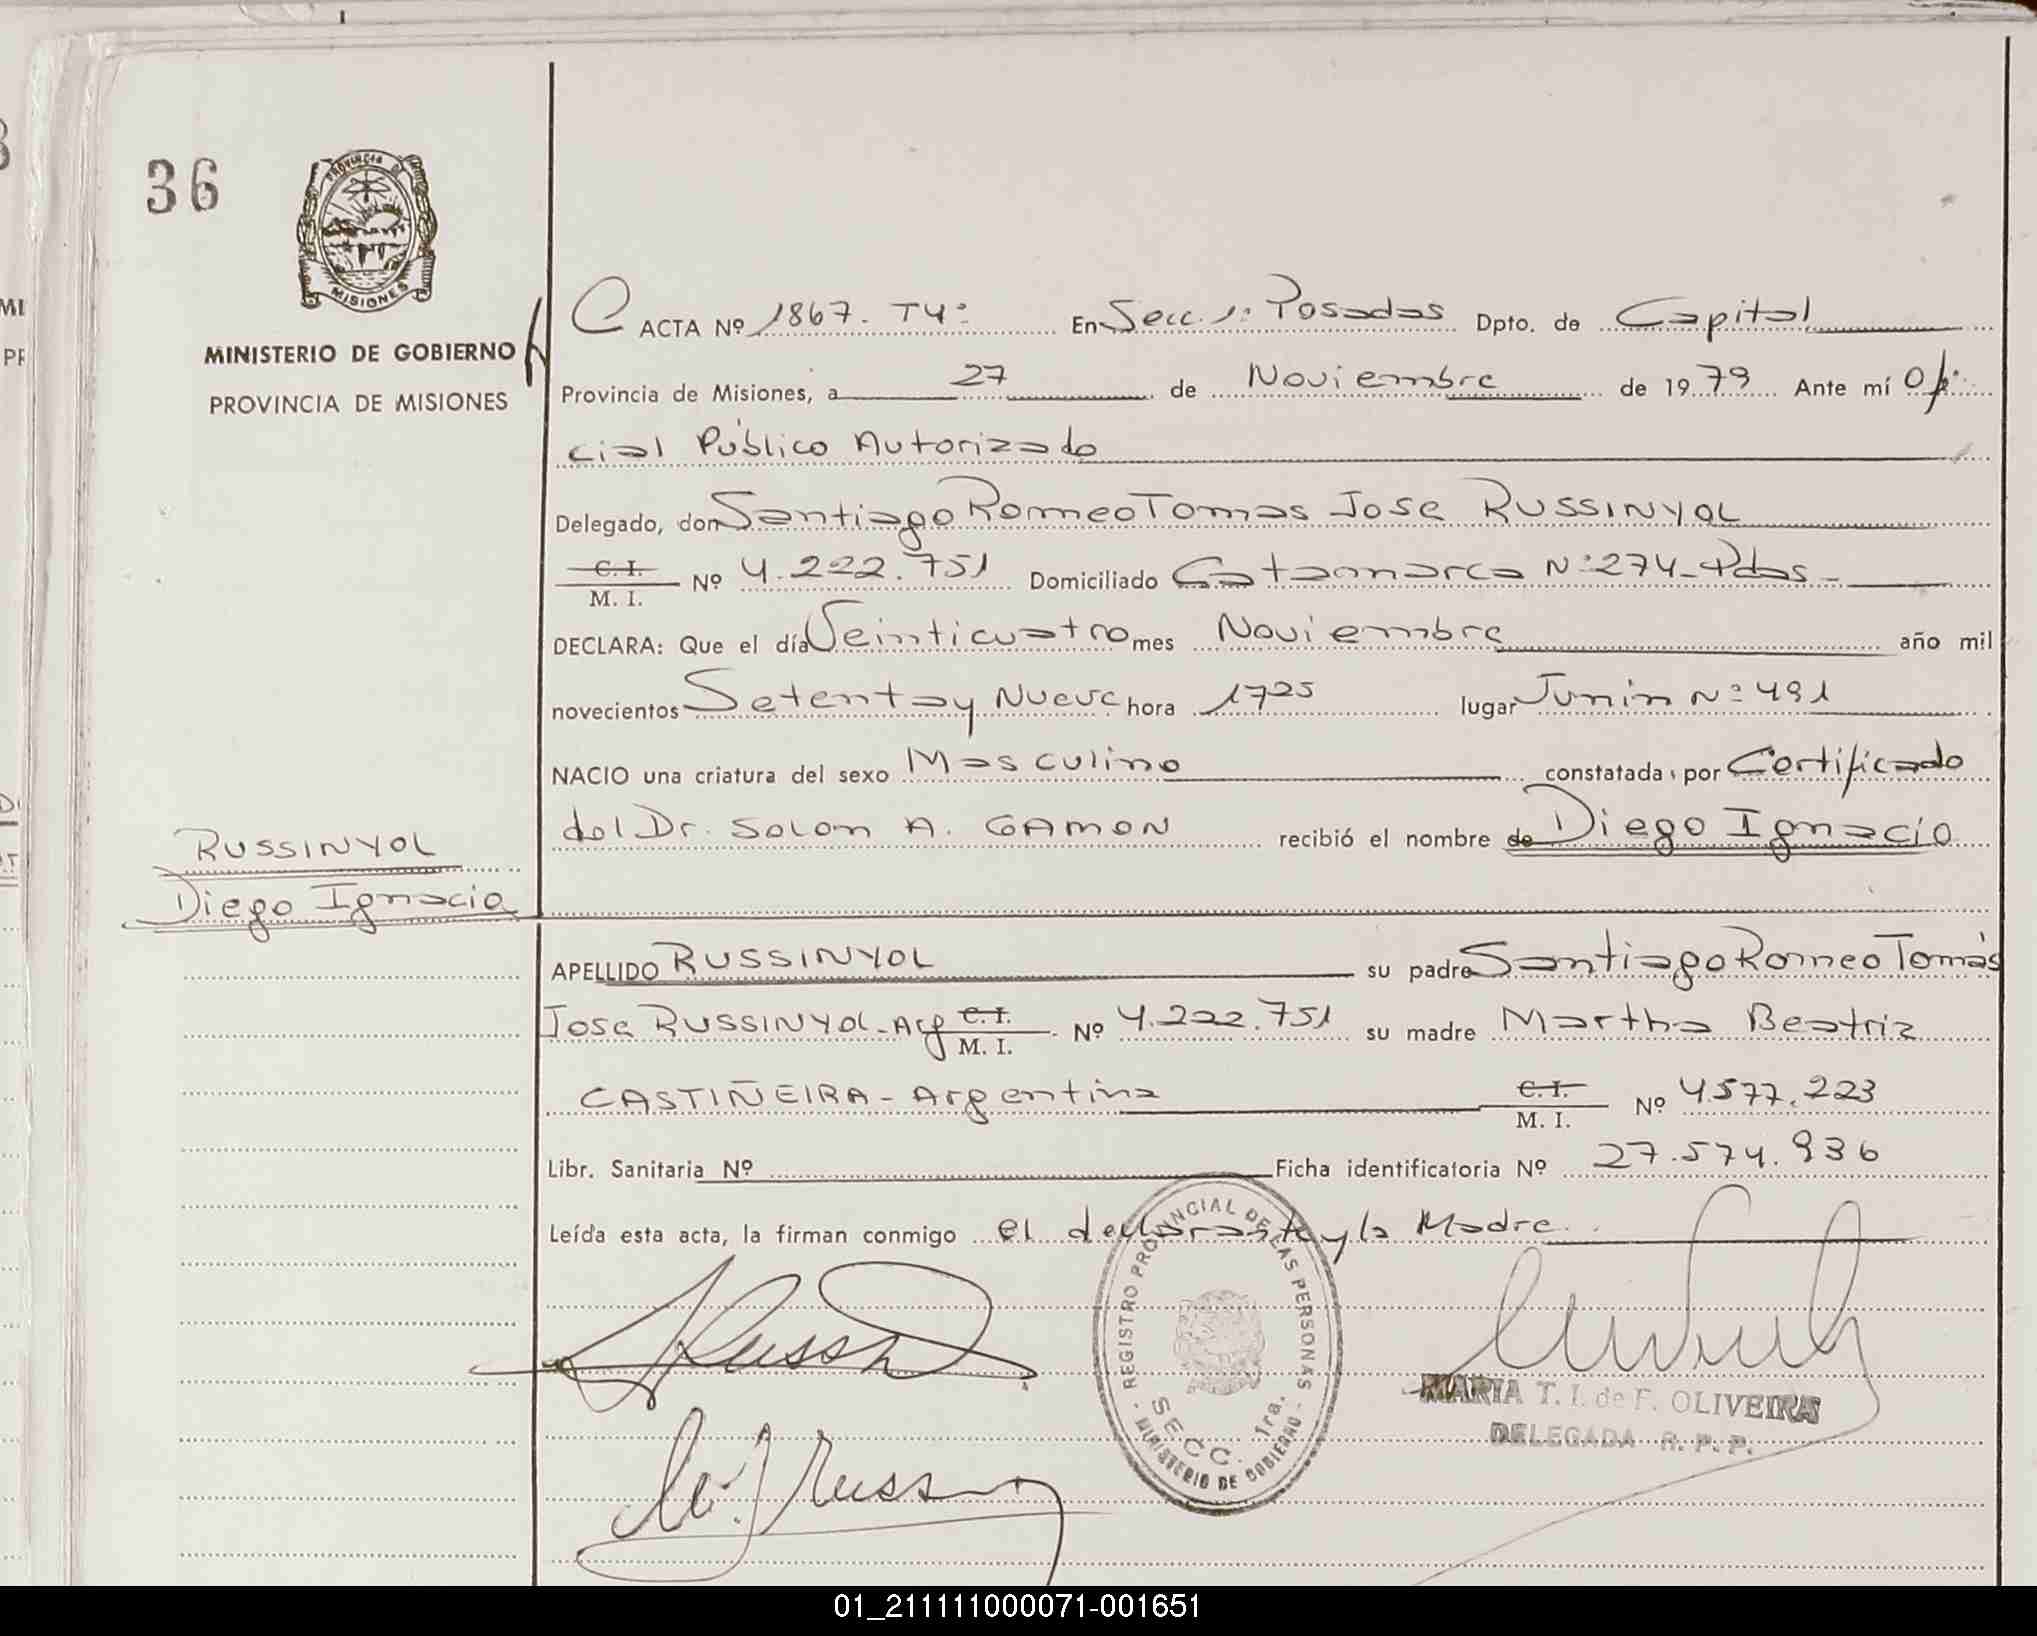 36
PROVINCIA DE
MISIONES
MINISTERIO DE GOBIERNO
PROVINCIA DE MISIONES
ACTA Nº 1867. T4º En Secc. 1ª Posadas Dpto. de Capital
Provincia de Misiones, a 27 de Noviembre de 1979 Ante mí Ofi
cial Público Autorizado
Delegado, don Santiago Romeo Tomas Jose RUSSINYOL
C. I. M. I. Nº 4.222.751 Domiciliado Catamarca Nº 274 - Pdas -
DECLARA: Que el día Veinticuatro mes Noviembre año mil
novecientos Setenta y Nueve hora 1725 lugar Junin Nº 491
NACIO una criatura del sexo Masculino constatada por Certificado
del Dr. SOLOM A. GAMON recibió el nombre de Diego Ignacio
RUSSINYOL
Diego Ignacio
APELLIDO RUSSINYOL su padre Santiago Romeo Tomás
Jose RUSSINYOL - Arg C. I. M. I. Nº 4.222.751 su madre Martha Beatriz
CASTIÑEIRA - Argentina C. I. M. I. Nº 4577.223
Libr. Sanitaria Nº Ficha identificatoria Nº 27.574.936
Leída esta acta, la firman conmigo el declarante y la Madre.
REGISTRO PROVINCIAL DE LAS PERSONAS
SECC. 1ra.
- MINISTERIO DE GOBIERNO -
MARIA T. I. de F. OLIVEIRA
DELEGADA R. P. P.
01_211111000071-001651